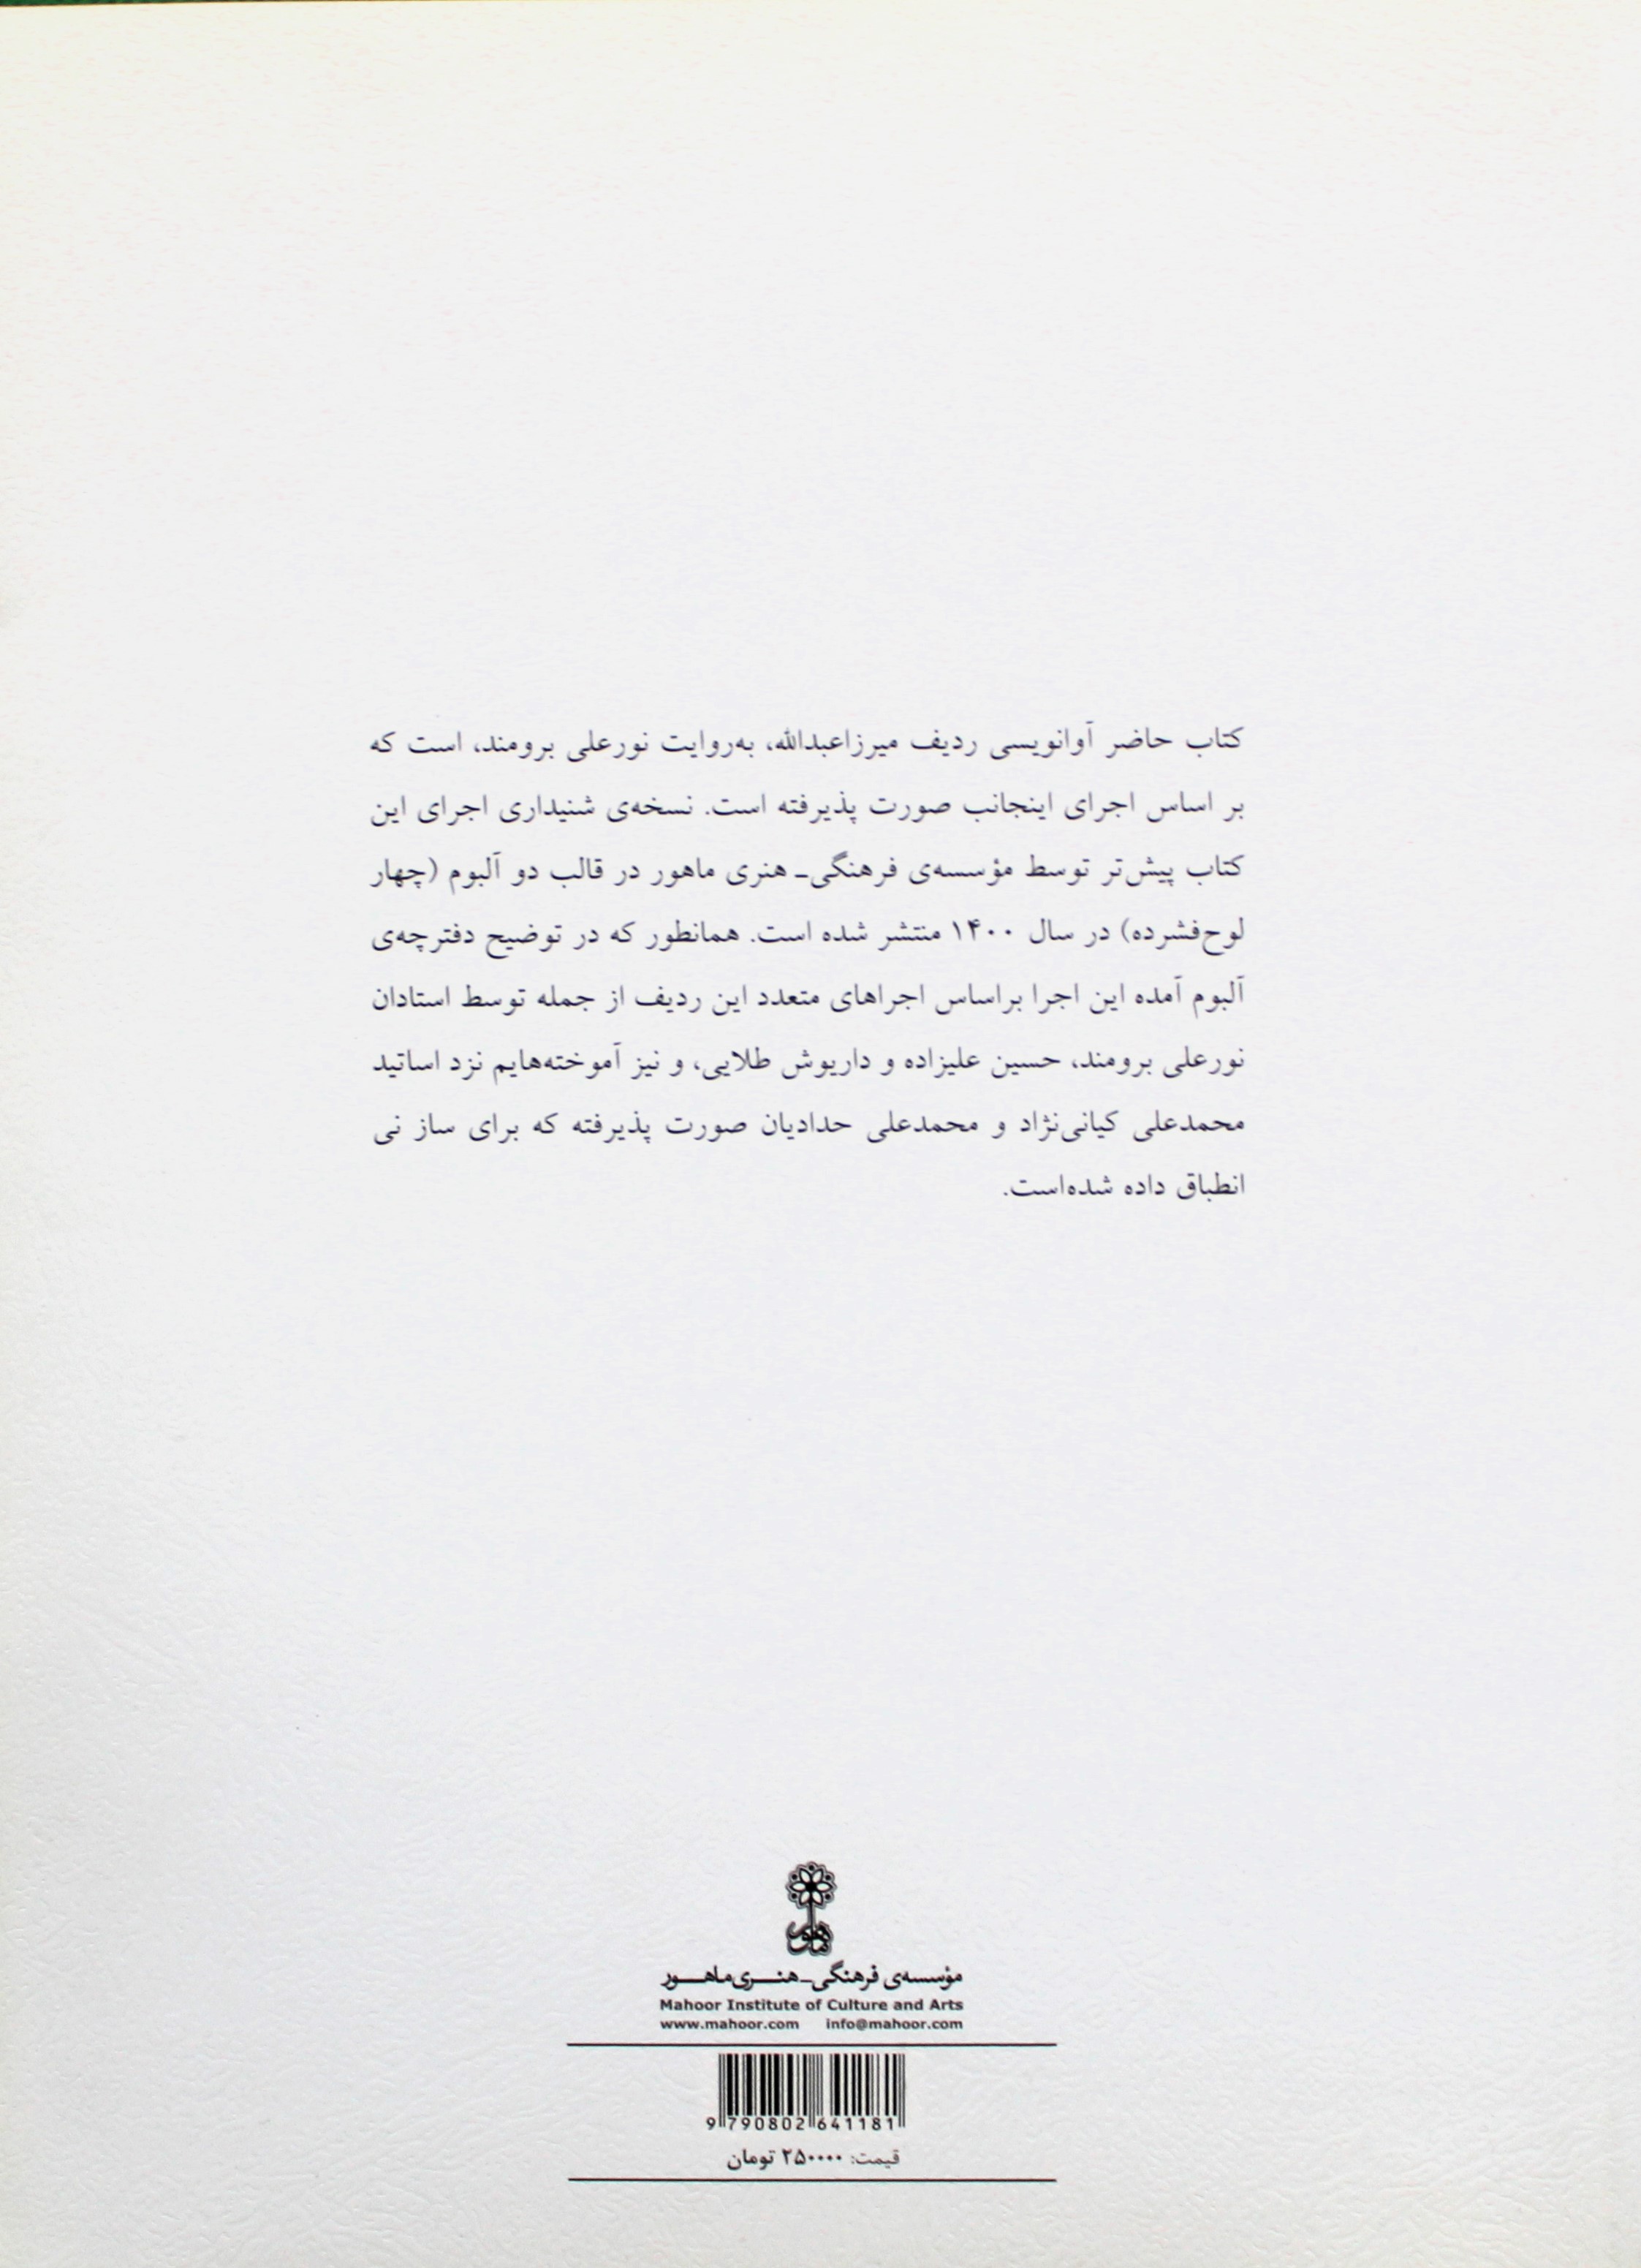 کتاب حاضر آوانویسی ردیف میرزاعبدالله، به‌روایت نورعلی برومند، است که
بر اساس اجرای اینجانب صورت پذیرفته است. نسخه‌ی شنیداری اجرای این
کتاب پیش‌تر توسط مؤسسه‌ی فرهنگی‌ـ هنری ماهور در قالب دو آلبوم (چهار
لوح‌فشرده) در سال ۱۴۰۰ منتشر شده است. همانطور که در توضیح دفترچه‌ی
آلبوم آمده این اجرا براساس اجراهای متعدد این ردیف از جمله توسط استادان
نورعلی برومند، حسین علیزاده و داریوش طلایی، و نیز آموخته‌هایم نزد اساتید
محمدعلی کیانی‌نژاد و محمدعلی حدادیان صورت پذیرفته که برای ساز نی
انطباق داده شده‌است.
ماهور
مؤسسه‌ی فرهنگی‌ـ هنری ماهور
Mahoor Institute of Culture and Arts
www.mahoor.com info@mahoor.com
9 790802 641181
قیمت: ۲۵۰۰۰۰ تومان